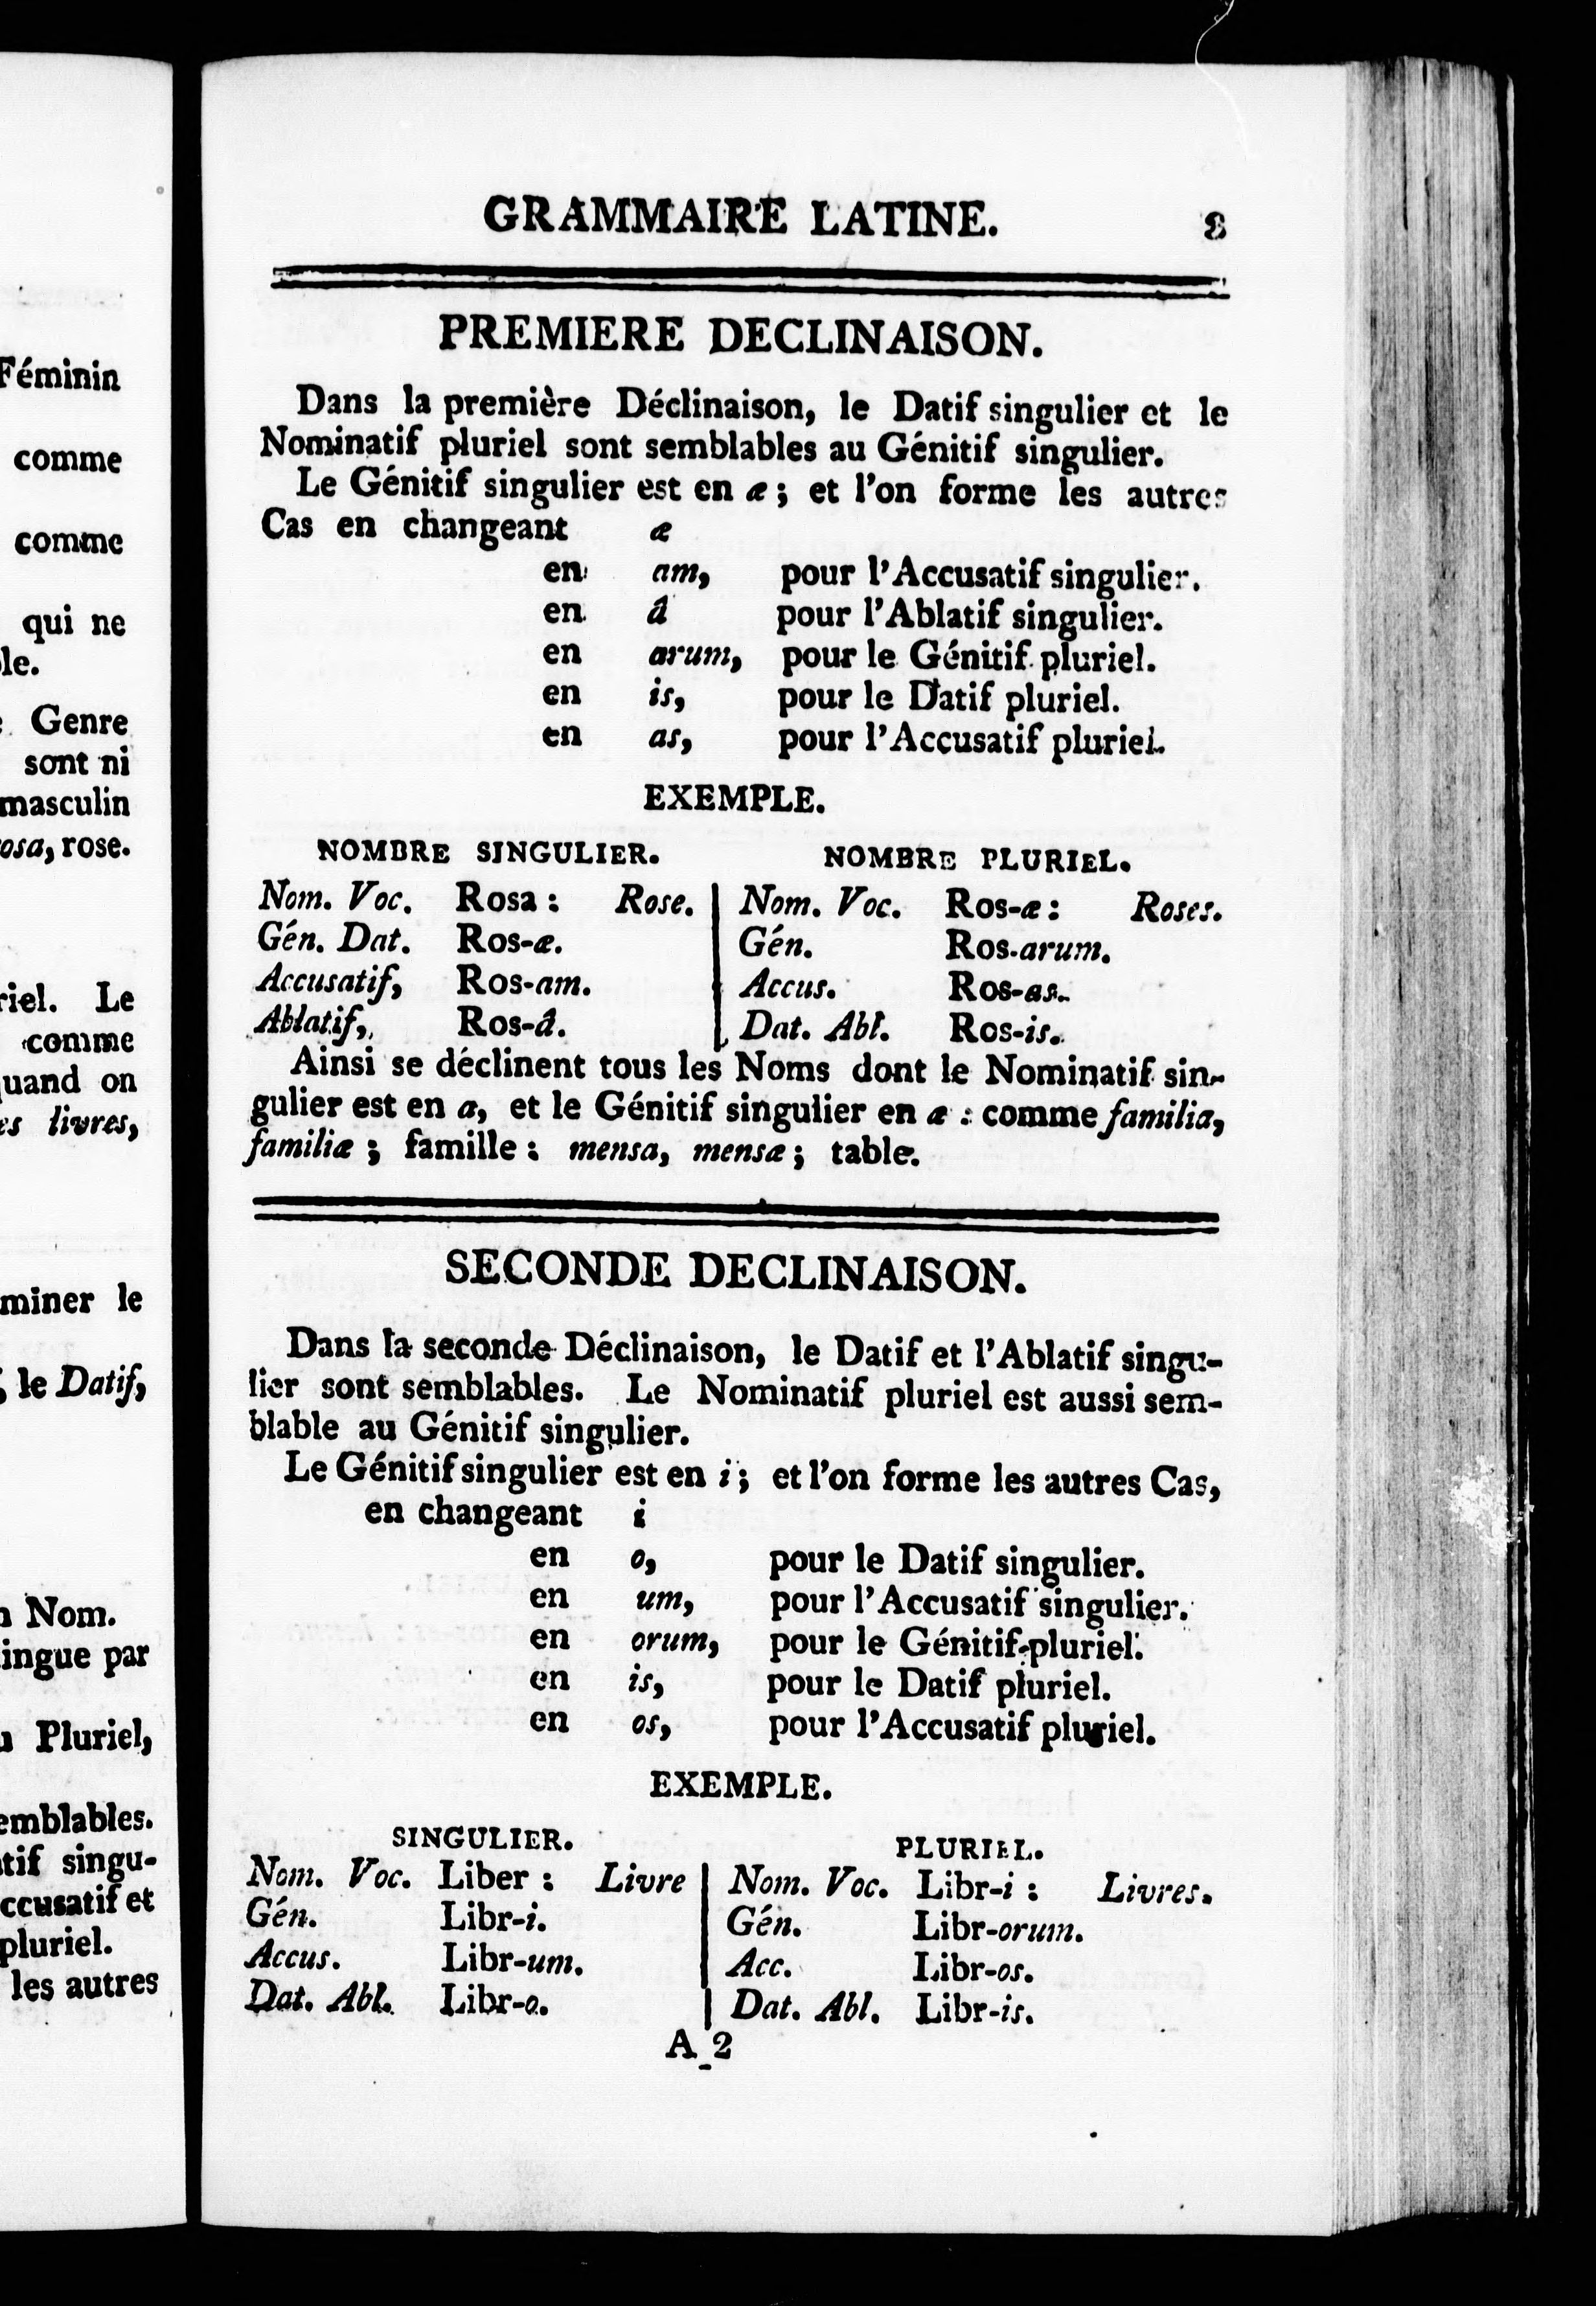 Féminin
comme
comme
qui ne
le.
Genre
sont ni
masculin
osa, rose.
riel. Le
comme
quand on
es livres,
miner le
, le Datif,
Nom.
ingue par
Pluriel,
emblables.
tif singu-
ccusatif et
pluriel.
les autres
GRAMMAIRE LATINE. 3
PREMIERE DECLINAISON.
Dans la première Déclinaison, le Datif singulier et le
Nominatif pluriel sont semblables au Génitif singulier.
Le Génitif singulier est en æ ; et l'on forme les autres
Cas en changeant æ
en am, pour l'Accusatif singulier.
en â pour l'Ablatif singulier.
en arum, pour le Génitif pluriel.
en is, pour le Datif pluriel.
en as, pour l'Accusatif pluriel.
EXEMPLE.
NOMBRE SINGULIER. NOMBRE PLURIEL.
Nom. Voc. Rosa : Rose. Nom. Voc. Ros-æ : Roses.
Gén. Dat. Ros-æ. Gén. Ros-arum.
Accusatif, Ros-am. Accus. Ros-as.
Ablatif, Ros-â. Dat. Abl. Ros-is.
Ainsi se déclinent tous les Noms dont le Nominatif sin-
gulier est en a, et le Génitif singulier en æ : comme familia,
familiæ ; famille : mensa, mensæ ; table.
SECONDE DECLINAISON.
Dans la seconde Déclinaison, le Datif et l'Ablatif singu-
lier sont semblables. Le Nominatif pluriel est aussi sem-
blable au Génitif singulier.
Le Génitif singulier est en i ; et l'on forme les autres Cas,
en changeant i
en o, pour le Datif singulier.
en um, pour l'Accusatif singulier.
en orum, pour le Génitif pluriel.
en is, pour le Datif pluriel.
en os, pour l'Accusatif pluriel.
EXEMPLE.
SINGULIER. PLURIEL.
Nom. Voc. Liber : Livre Nom. Voc. Libr-i : Livres.
Gén. Libr-i. Gén. Libr-orum.
Accus. Libr-um. Acc. Libr-os.
Dat. Abl. Libr-o. Dat. Abl. Libr-is.
A 2